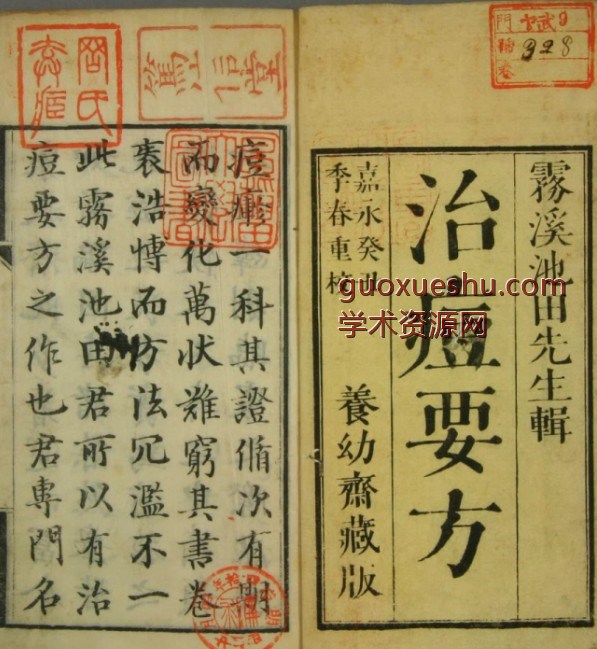 霧溪池田先生輯
治痘要方
嘉永癸丑
季春重校
養幼齋藏版
guoxueshu.com
学术资源网
門
卷
928
痘一科其證脩次有期
而變化萬狀難窮其書卷
袠浩愽而方法冗濫不一
此霧溪池田君所以有治
痘要方之作也君專門名